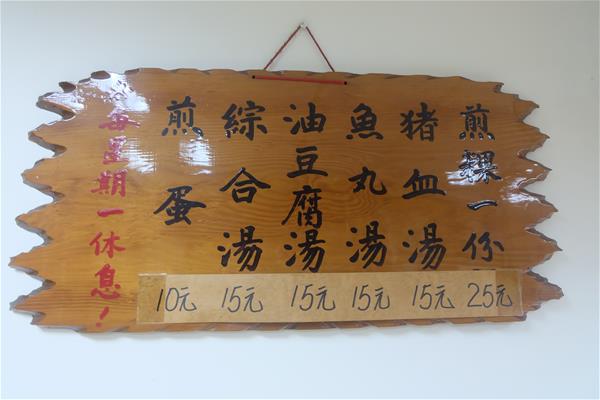 煎粿一份
豬血湯
魚丸湯
油豆腐湯
綜合湯
煎蛋
每星期一休息！
25元
15元
15元
15元
15元
10元